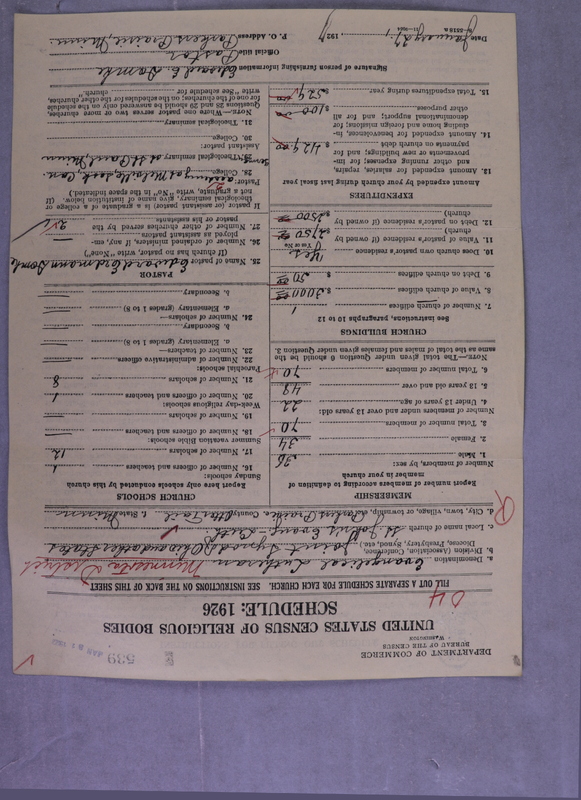 DEPARTMENT OF COMMERCE
BUREAU OF THE CENSUS
WASHINGTON
539
UNITED STATES CENSUS OF RELIGIOUS BODIES
SCHEDULE: 1926
FILL OUT A SEPARATE SCHEDULE FOR EACH CHURCH. SEE INSTRUCTIONS ON THE BACK OF THIS SHEET
a. Denomination Evangelical Lutheran Minnesota District
b. Division (Association, Conference, Diocese, Presbytery, Synod, etc.) Joint Synod of Ohio and other States
c. Local name of church St John's Evang-Luth
d. City, town, village, or township Parkers Prairie County Otter Tail State Minn
MEMBERSHIP
Report number of members according to definition of
member in your church
Number of members, by sex:
1. Male 36
2. Female 34
3. Total number of members 70
Number of members under and over 13 years old:
4. Under 13 years of age 22
5. 13 years old and over 48
6. Total number of members 70
NOTE.—The total given under Question 6 should be the
same as the total of males and females given under Question 3.
CHURCH BUILDINGS
See instructions, paragraphs 10 to 12
7. Number of church edifices 1
8. Value of church edifices $ 3000.00
9. Debt on church edifices $ 50.00
10. Does church own pastor's residence Yes
(Yes or No)
11. Value of pastor's residence (if owned by
church) $
12. Debt on pastor's residence (if owned by
church) $
EXPENDITURES
Amount expended by your church during last fiscal year
13. Amount expended for salaries, repairs,
and other running expenses; for im-
provements or new buildings; and for
payments on church debt $ 424.00
14. Amount expended for benevolences, in-
cluding home and foreign missions; for
denominational support; and for all
other purposes $ 100.00
15. Total expenditures during year $ 524.00
CHURCH SCHOOLS
Report here only schools conducted by this church
Sunday schools:
16. Number of officers and teachers 1
17. Number of scholars 12
Summer vacation Bible schools:
18. Number of officers and teachers
19. Number of scholars
Week-day religious schools:
20. Number of officers and teachers 1
21. Number of scholars 8
Parochial schools:
22. Number of administrative officers
23. Number of teachers—
a. Elementary (grades 1 to 8)
b. Secondary
24. Number of scholars—
a. Elementary (grades 1 to 8)
b. Secondary
PASTOR
25. Name of pastor Edward Erdmann Domke
(If church has no pastor write "None")
26. Number of ordained ministers, if any, em-
ployed as assistants to pastor
27. Number of other churches served by the
pastor or his assistants 2
If pastor (or assistant pastor) is a graduate of a college or
theological seminary, give name of institution below. (If
not a graduate, write "No" in the space indicated.)
Pastor:
28. College
29. Theological seminary at St Paul, Minn
Assistant pastor:
30. College
31. Theological seminary
NOTE.—Where one pastor serves two or more churches,
Questions 25 and 26 should be answered only on the schedule
for one of the churches; on the schedules for the other churches,
write "See schedule for church."
Signature of person furnishing information Edward E. Domke
Official title Pastor
P. O. Address Parkers Prairie, Minn.
Date January 27, 1927